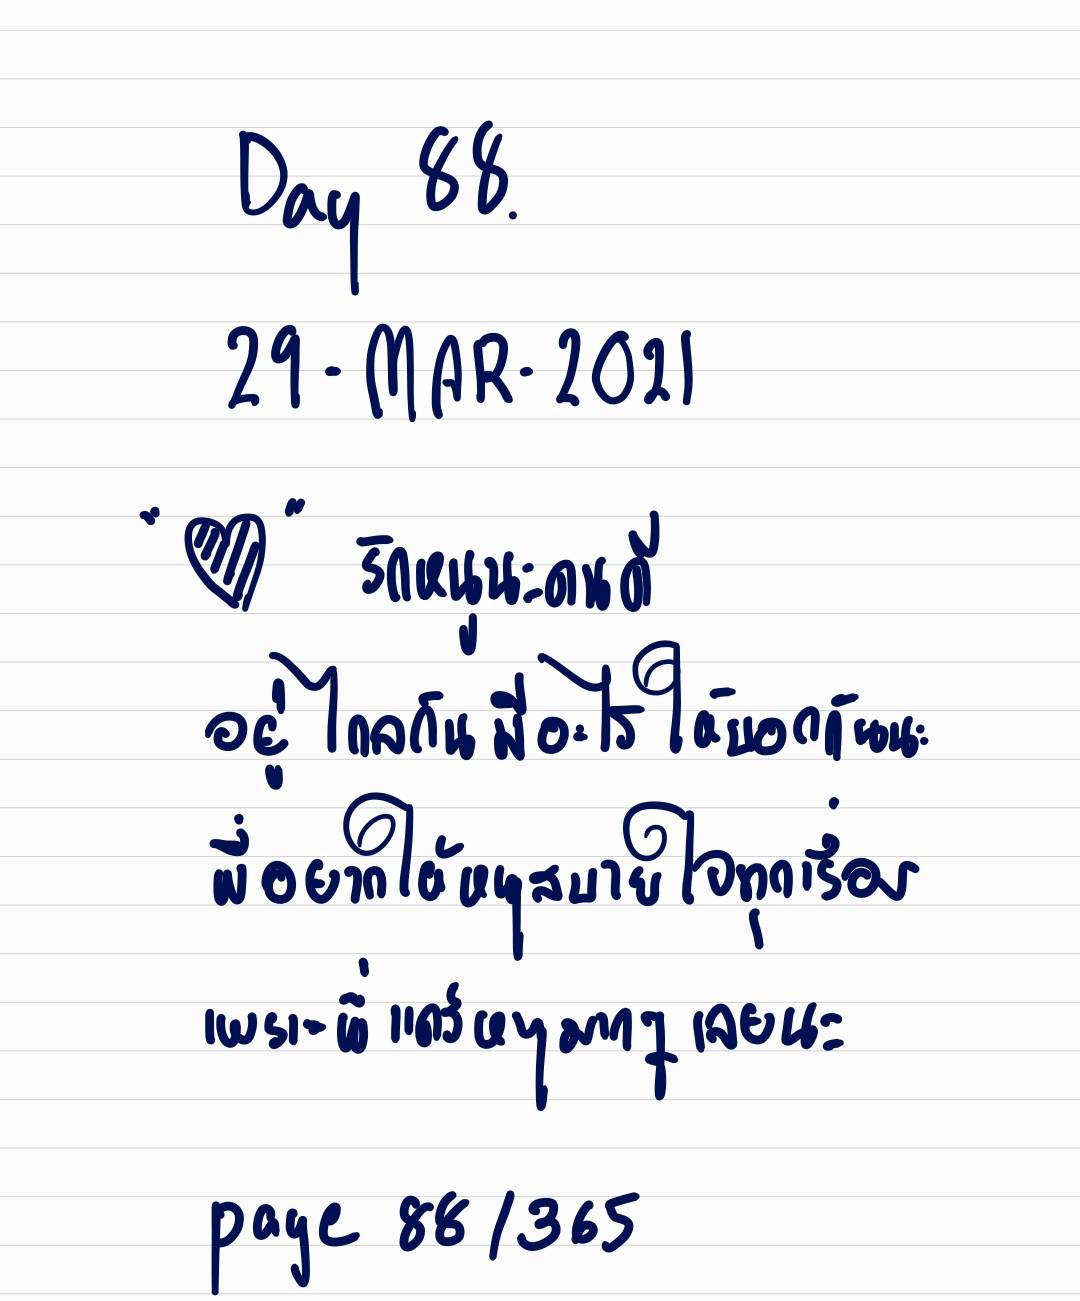 Day 88.
29-MAR-2021
"♥" รักหนูนะคนดี
อยู่ไกลกันมีอะไรให้บอกกันนะ
พี่อยากให้หนูสบายใจทุกเรื่อง
เพราะพี่แคร์หนูมากๆเลยนะ
page 88/365